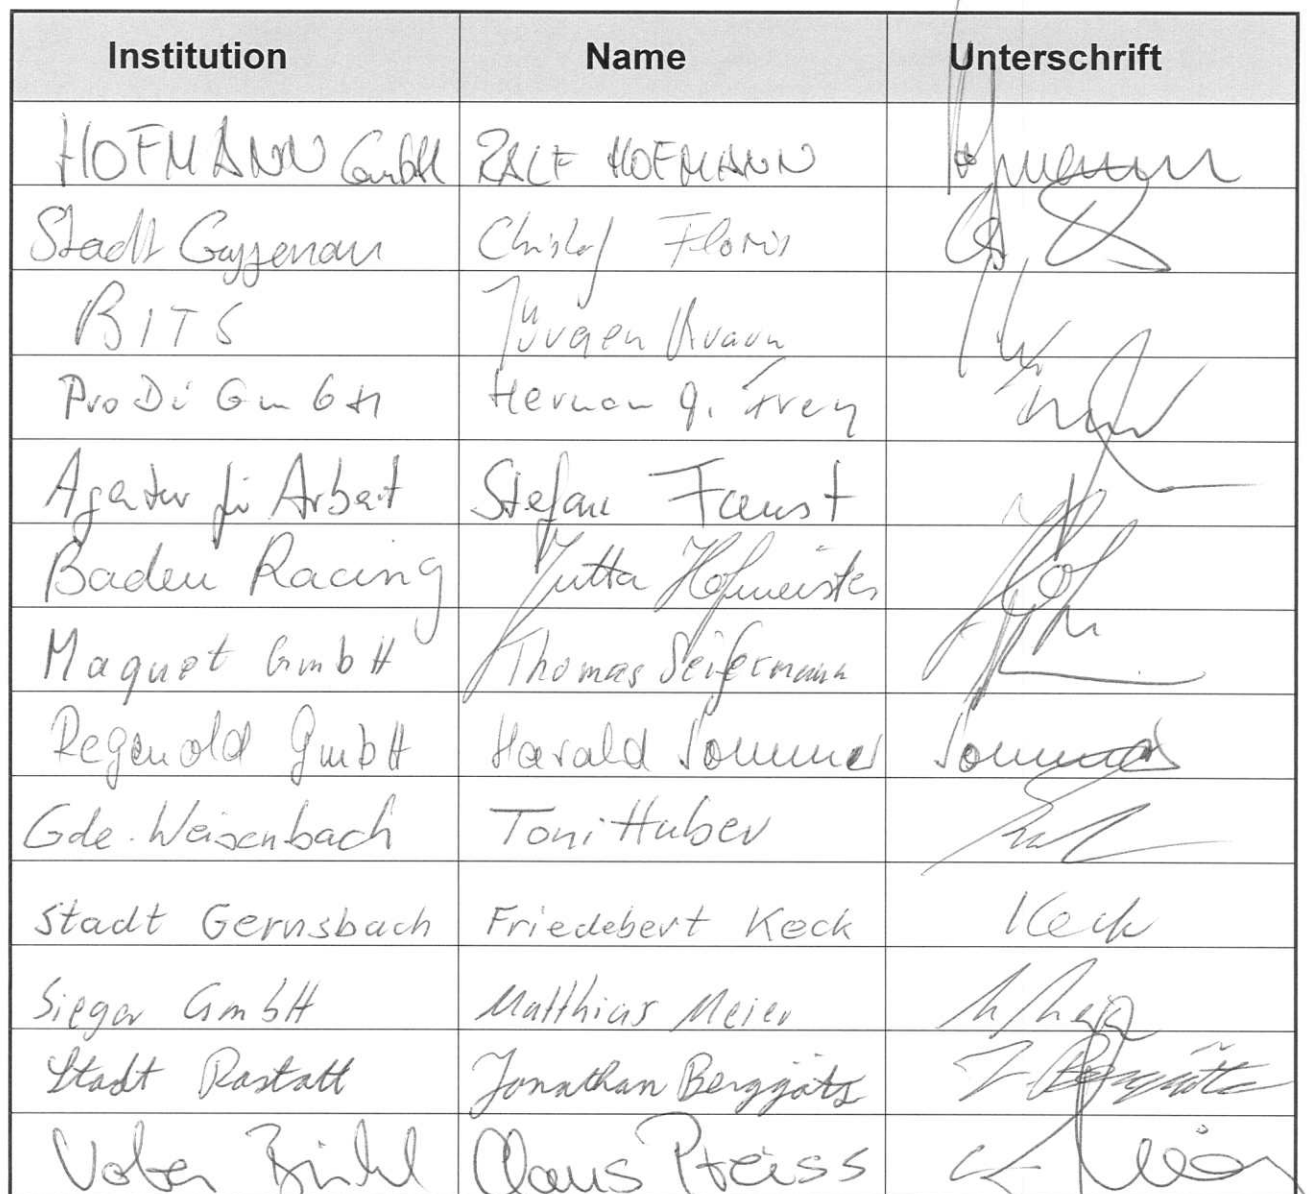 Institution Name Unterschrift
HOFMANN GmbH RALF HOFMANN
Stadt Gaggenau Christof Florus
BITS Jürgen
ProDi GmbH Herman g. Frey
Agentur für Arbeit Stefan Faust
Baden Racing Jutta Hofmeister
Maquet GmbH Thomas Seifermann
Regenold GmbH Harald Sommer Sommer
Gde. Weisenbach Toni Huber
Stadt Gernsbach Friedebert Keck Keck
Sieger GmbH Matthias Meier
Stadt Rastatt Jonathan Berggötz J. Berggötz
Bühl Claus Preiss